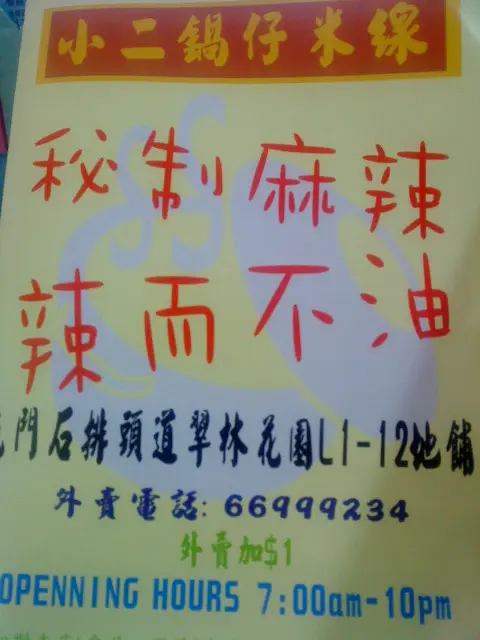 小二鍋仔米線
秘制麻辣
辣而不油
門石排頭道翠林花園L1-12地舖
外賣電話: 66999234
外賣加$1
OPENNING HOURS 7:00am-10pm